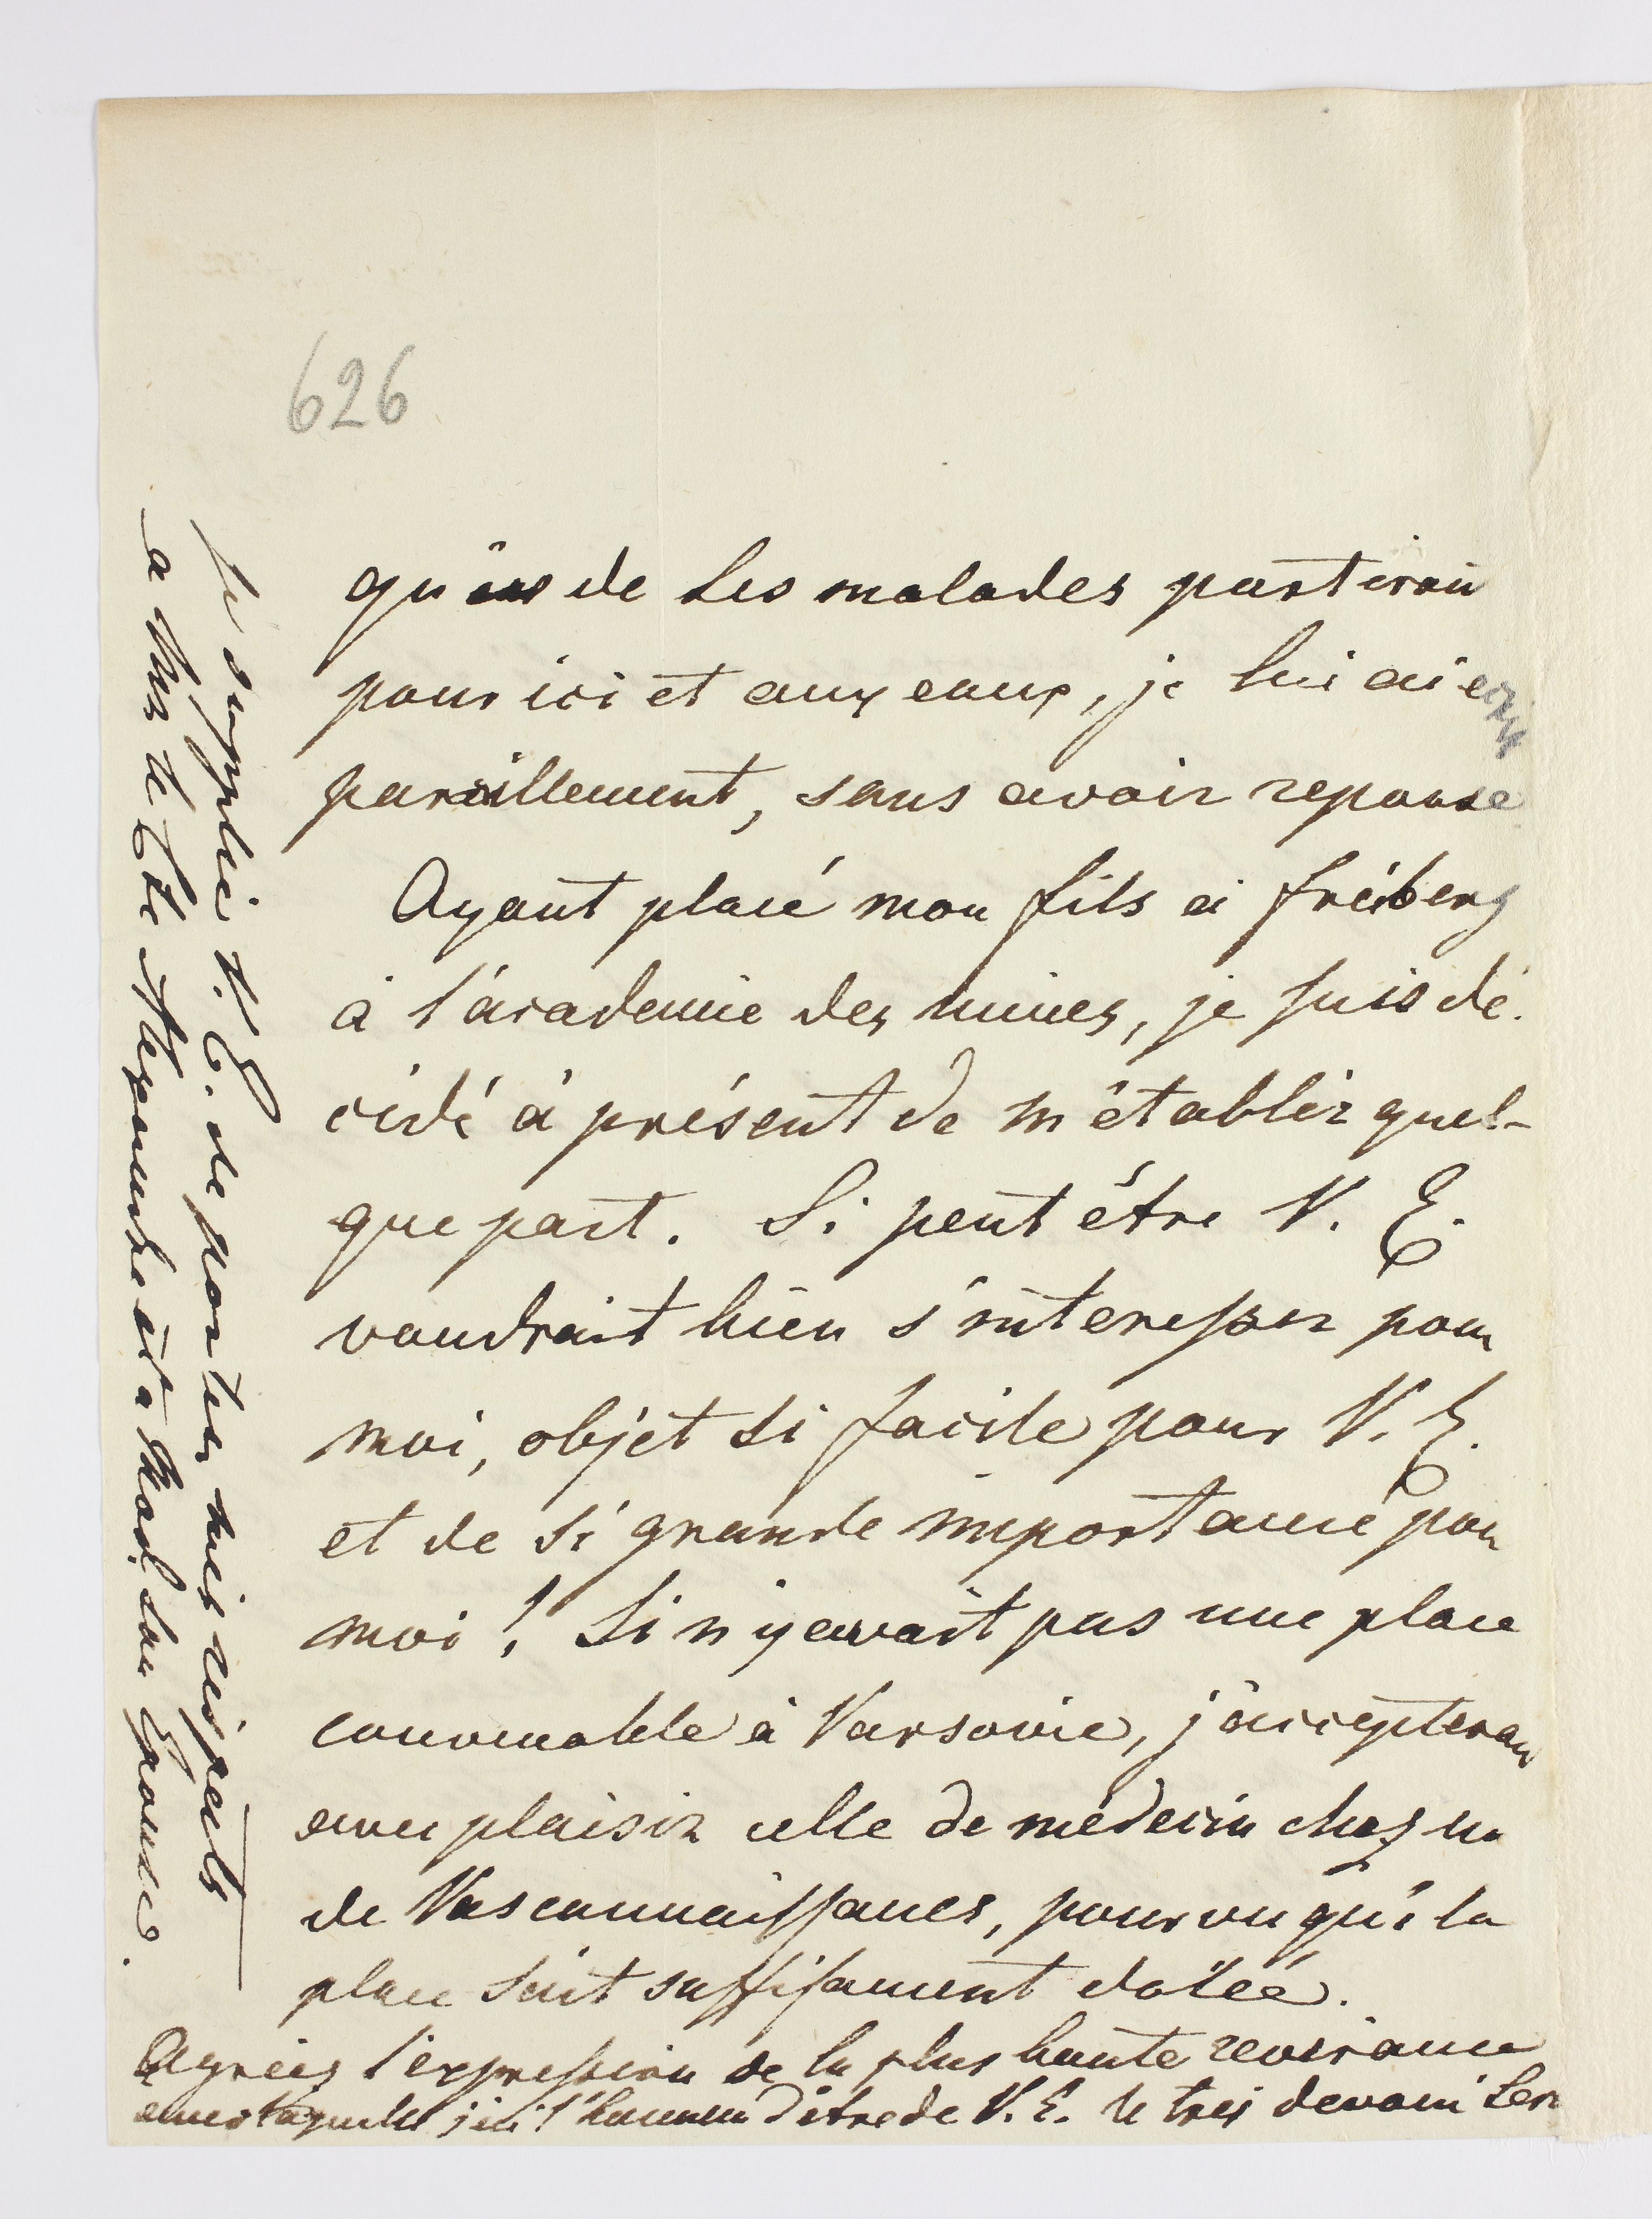 626
de ses malades partirai
pour ici et aux eaux, je lui ai ecrit
pareillement, sans avoir reponse
Ayant placé mon fils à Freiberg
à l'academie des mines, je suis dé-
cidé à présent de m'établir quel-
que part. Si peut être V. E.
voudrait bien s'interesser pour
moi, objet si facile pour V. E.
et de si grande importance pour
moi! Si n'y avait pas une place
convenable à Varsovie, j'accepterai
avec plaisir celle de médecin chez un
de Vos connaissances, pourvu que la
place soit suffisament dotée.
Agréez l'expression de la plus haute reverance
avec laquelle j'ai l'honneur d'être de V. E. le très devoué Ser
Je supplie V. E. de porter mes respects
a Mr le Cte Alexandre et a Mad. son Epouse.